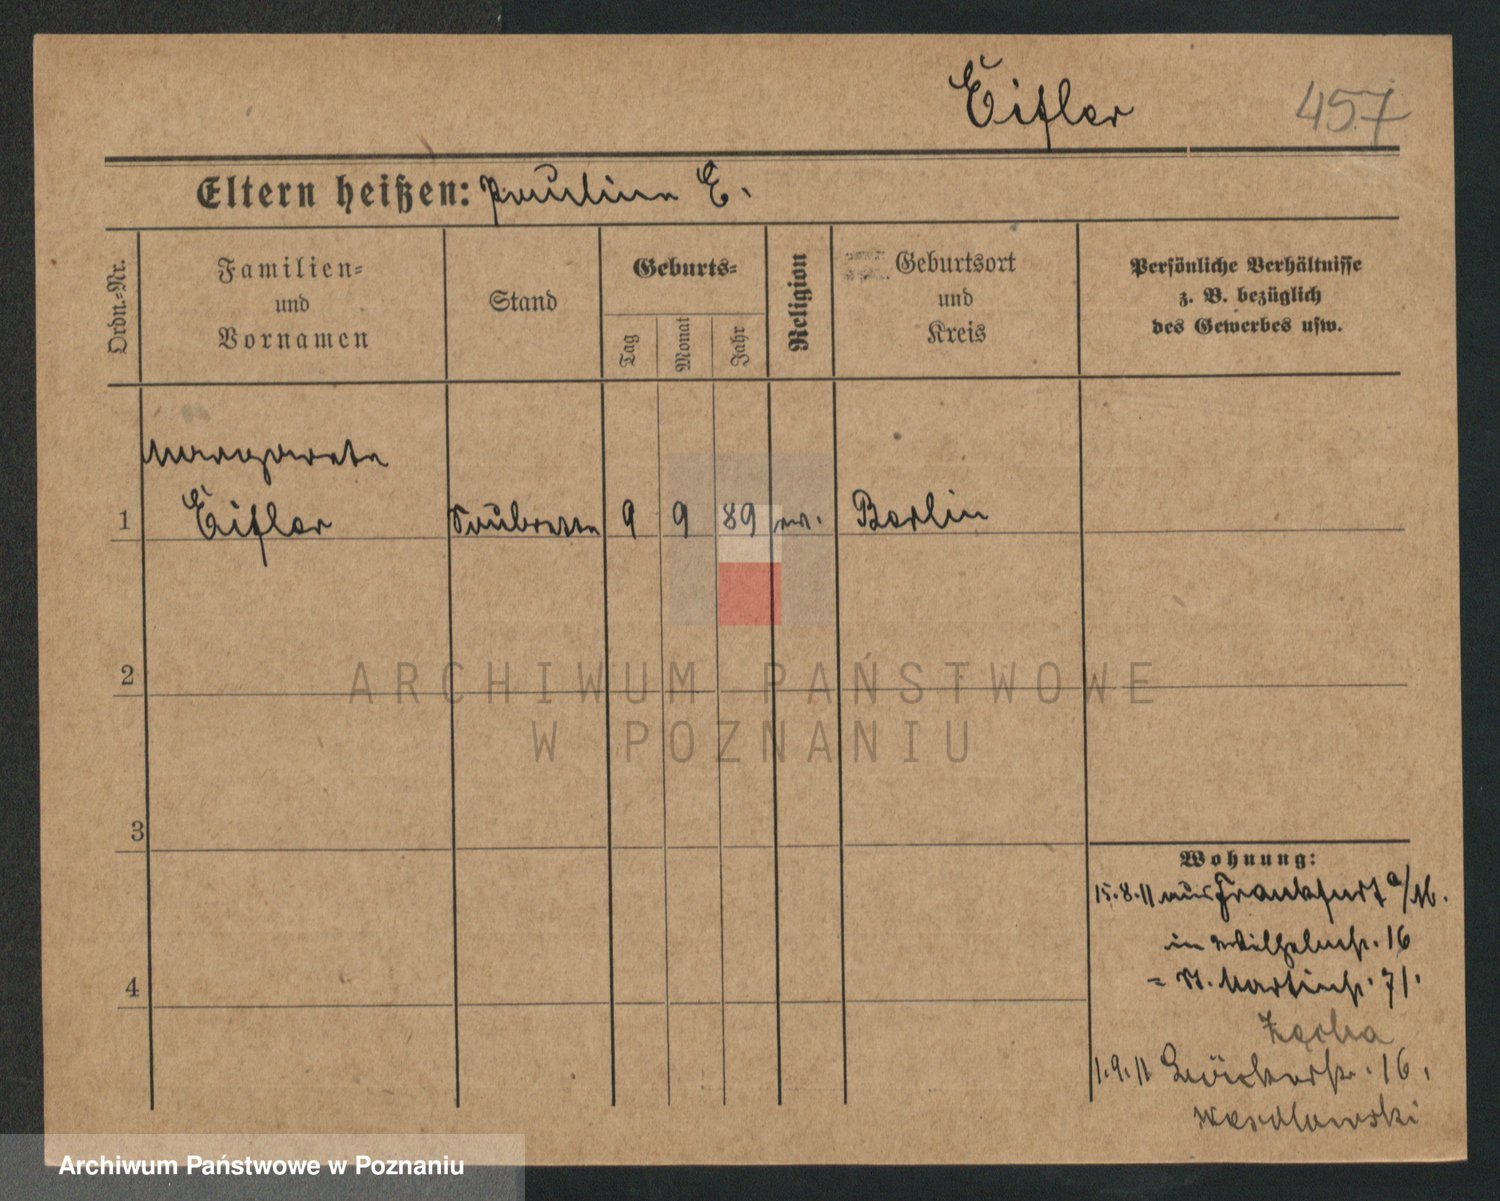 Eifler 457
Eltern heißen: Pauline E.
Ordn.=Nr.
Familien=
und
Vornamen
Stand
Geburts=
Tag
Monat
Jahr
Religion
Geburtsort
und
Kreis
Persönliche Verhältnisse
z. B. bezüglich
des Gewerbes usw.
Margarete
1 Eifler Soubrette 9 9 89 ev. Berlin
2
3
4
Wohnung:
15.8.11 aus Frankfurt a/M.
in Wilhelmstr. 16
= St. Martinstr. 71.
1.9.11 Bäckerstr. 16.
ARCHIWUM PAŃSTWOWE
W POZNANIU
Archiwum Państwowe w Poznaniu